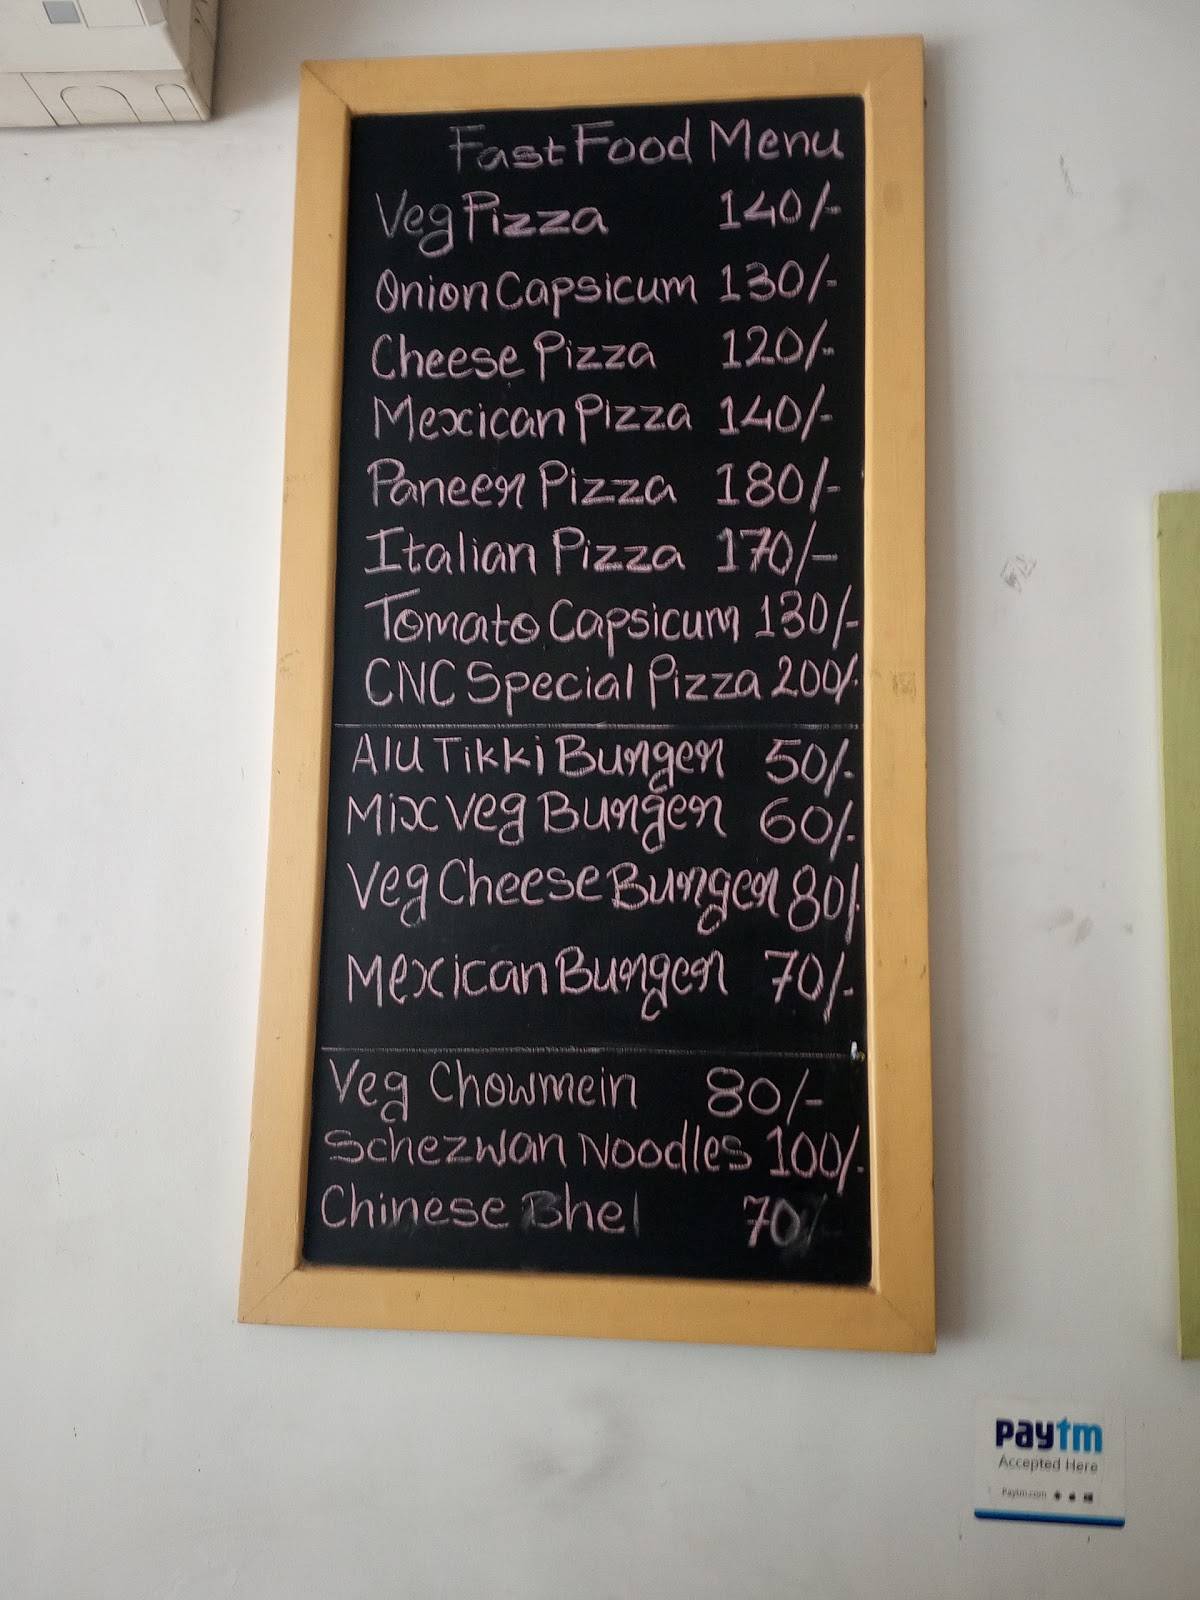 Fast Food Menu
Veg Pizza 140/-
Onion Capsicum 130/-
Cheese Pizza 120/-
Mexican Pizza 140/-
Paneer Pizza 180/-
Italian Pizza 170/-
Tomato Capsicum 130/-
CNC Special Pizza 200/-
Alu Tikki Burger 50/-
Mix Veg Burger 60/-
Veg Cheese Burger 80/-
Mexican Burger 70/-
Veg Chowmein 80/-
Schezwan Noodles 100/-
Chinese Bhel 70/-
paytm
Accepted Here
Paytm.com